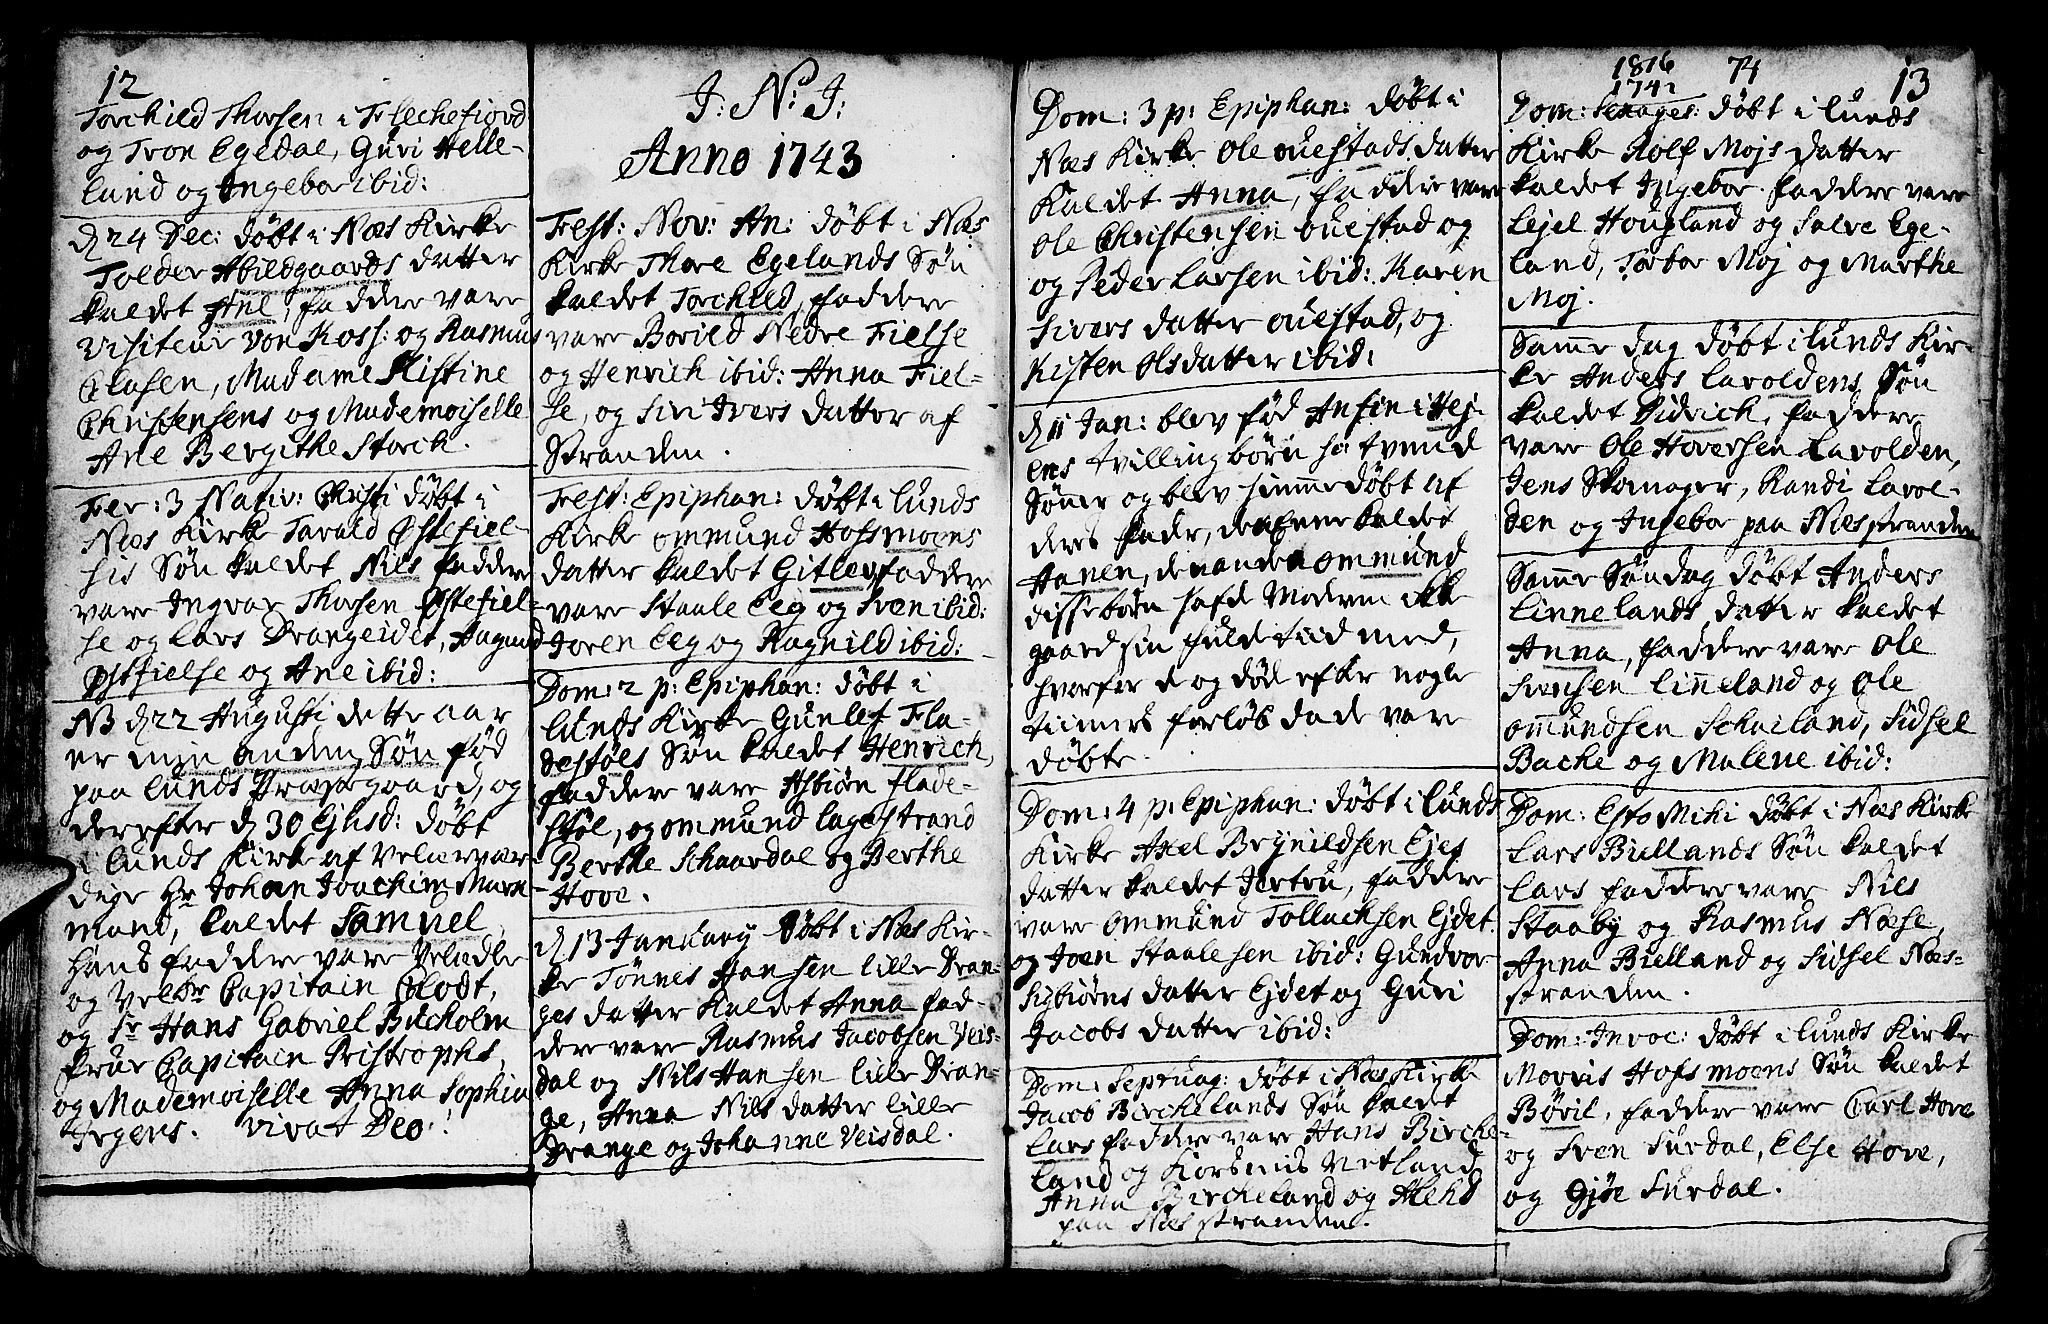 12
Torchild Thorsen i Flechefiord
og Tron Egedal, Guri Helle-
lund og Ingebor ibid:
d 24 Dec: døbt i Næs Kirke
Tolder Abildgaards datter
kaldet Ane, faddere vare
Visiteur von Koss: og Rasmus
Olasen, Madame Kistine
Christensens og Mademoiselle
Ane Bergithe Storch.
Fer: 3 Nativ: Christi døbt i
Næs Kirke Tarald Østefiel-
ses Søn kaldet Nils faddere
vare Ingvar Thorsen Østefiel-
se og Lars Drangeidet, Aagund
Østfielse og Ane ibid:
NB d 22 Augusti dette aar
er min anden Søn fød
paa Lunds Præstgaard, og
derefter d 30 Ejusd: døbt
i Lunds Kirke af Velærvær-
dige Hr Johan Joachim
mand, kaldet Samuel,
Hans faddere vare Velædle
og Velbr Capitain Clodt,
og Sr Hans Gabriel Bucholm
frue Capitain Pristrophs,
og Mademoiselle Anna Sophia
Irgens. Vivat Deo!
J: N: J:
Anno 1743
Fest: Nov: An: døbt i Næs
Kirke Thore Egelands Søn
kaldet Torchild, faddere
vare Boried Nedre Fielse
og Henrich ibid: Anna Fiel-
se, og Siri Ivers datter af
Stranden.
Fest: Epiphan: døbt i Lunds
Kirke Ommund Hofsmoens
datter kaldet Gitlev, faddere
vare Staale Eeg og Sven ibid:
Joren Eeg og Ragnild ibid:
Dom: 2 p: Epiphan: døbt i
Lunds Kirke Gunlef Fla-
destøls Søn kaldet Henrich,
faddere vare Asbiørn flade-
støl, og Ommund Lagestrand
Berthe Schaardal og Berthe
Hove.
d 13 January døbt i Næs Kir-
ke Tønnes Hansen lille Dran-
ges datter kaldet Anna fad-
dere vare Rasmus Jacobsen Veis-
dal og Nils Hansen lille Dran-
ge, Anna Nils datter lille
Drange og Johanne Veisdal.
Dom: 3 p: Epiphan: døbt i
Næs Kirke Ole Ouestads datter
kaldet Anna, faddere vare
Ole Christensen Ouestad og
og Peder Larsen ibid: Karen
Sivers datter Ouestad, og
Kisten Olsdatter ibid:
d 11 Jan: blev fød Ansin i Hej-
ens tvillingbørn som tvende
Sønner og blev hiemmedøbt af
deres fader, den Eene kaldet
Hanen, den anden Ommund
disse børn hafde Moderen ikke
gaaed sin fulde tiid med,
hvorfor de og døde efter nogle
tiimers forløb da de vare
døbte.
Dom: 4 p: Epiphan: døbt i Lunds
Kirke Axel Brynildsen Ejes
datter kaldet Jertru, faddere
vare Ommund Tollachsen Ejdet.
og Joen Staalesen ibid: Gundvor
Sigbiørns datter Ejdet og Guri
Jacobs datter ibid:
Dom: Septuag: døbt i Næs Kirke
Jacob Birchelands Søn kaldet
Lars faddere vare Hans Birche-
land og Korsemis Netland
Anna Bircheland og
paa Næs stranden.
1816 74
1742 13
Dom: Sexages: døbt i Lunds
Kirke Rolf Mojs datter
kaldet Ingebor. faddere vare
Lejel Hougland og Salve Ege-
land, Torbor Moj og Marthe
Moj.
Samme dag døbt i Lunds Kir-
ke Anders Laroldens Søn
kaldet Didrich, faddere
vare Ole Hoversen Larolden,
Jens Skomager, Randi Larol-
den og Ingebor paa Næsstranden
Samme Søndag døbt Anders
Linnelands datter kaldet
Anna, faddere vare Ole
Svensen Linneland og Ole
Ommundsen Schailand, Sidsel
Backe og Malene ibid:
Dom: Esto Mihi døbt i Næs Kirke
Lars Biellands Søn kaldet
Lars faddere vare Nils
Staaby og Rasmus Næse,
Anna Bielland og Sidsel Næs-
stranden.
Dom: Invoc: døbt i Lunds Kirke
Morris Hofsmoens Søn kaldet
Børil, faddere vare Carl Hove
og Sven Surdal, Else Hove,
og Gjøe Surdal.